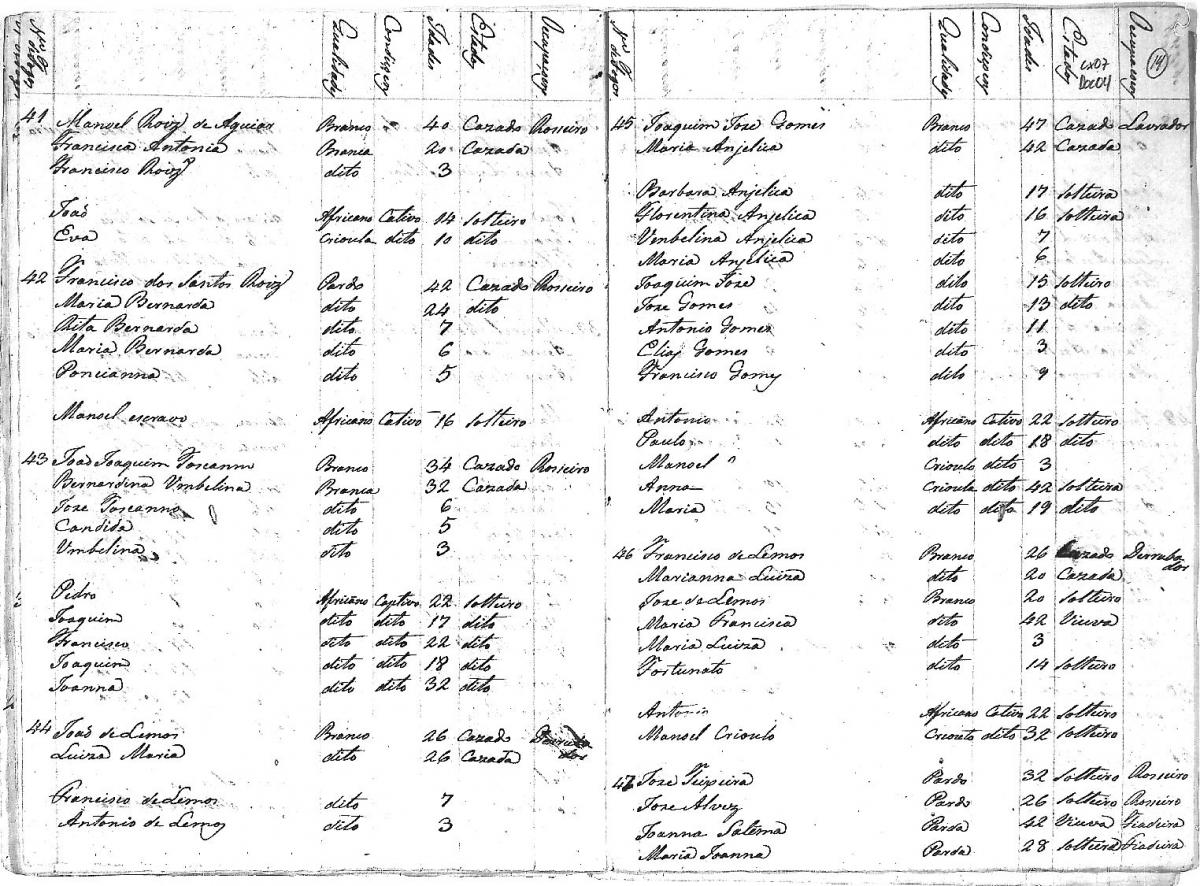 Nos de Fogos Qualidades Condiçoens Idades Estados Ocupaçoens
41 Manoel Roiz de Aguiar Branco 40 Cazado Rosseiro
Francisca Antonia Branca 20 Cazada
Francisco Roiz dito 3
João Africano Cativo 14 Solteiro
Eva Crioula dito 10 dito
42 Francisco dos Santos Roiz Pardo 42 Cazado Rosseiro
Maria Bernarda dito 24 dito
Rita Bernarda dito 7
Maria Bernarda dito 6
Poncianna dito 5
Manoel escravo Africano Cativo 16 Solteiro
43 João Joaquim Toscanno Branco 34 Cazado Rosseiro
Bernardina Vmbelina Branca 32 Cazada
Joze Toscanno dito 6
Candida dito 5
Vmbelina dito 3
Pedro Africano Captivo 22 Solteiro
Joaquim dito dito 17 dito
Francisco dito dito 22 dito
Joaquim dito dito 18 dito
Joanna dito dito 32 dito
44 João de Lemos Branco 26 Cazado Derruba
dor
Luiza Maria dito 26 Cazada
Francisco de Lemos dito 7
Antonio de Lemos dito 3
Nos de Fogos Qualidades Condiçoens Idades Estados Ocupaçoens
14
CX07
Doc04
45 Joaquim Joze Gomes Branco 47 Cazado Lavrador
Maria Anjelica dito 42 Cazada
Barbara Anjelica dito 17 Solteira
Florentina Anjelica dito 16 Solteira
Vmbelina Anjelica dito 7
Maria Anjelica dito 6
Joaquim Joze dito 15 Solteiro
Joze Gomes dito 13 dito
Antonio Gomes dito 11
Elias Gomes dito 3
Francisco Gomes dito 9
Antonio Africano Cativo 22 Solteiro
Paulo dito dito 18 dito
Manoel Crioulo dito 3
Anna Crioula dito 42 Solteira
Maria dito dito 19 dito
46 Francisco de Lemos Branco 26 Cazado Derruba
dor
Marianna Luiza dito 20 Cazada
Joze de Lemos Branco 20 Solteiro
Maria Francisca dito 42 Viuva
Maria Luiza dito 3
Fortunato dito 14 Solteiro
Antonio Africano Cativo 22 Solteiro
Manoel Crioulo Crioulo dito 32 Solteiro
47 Joze Teixeira Pardo 32 Solteiro Rosseiro
Joze Alvez Pardo 26 Solteiro Rosseiro
Joanna Salema Parda 42 Viuva Fiadeira
Maria Joanna Parda 28 Solteira Fiadeira